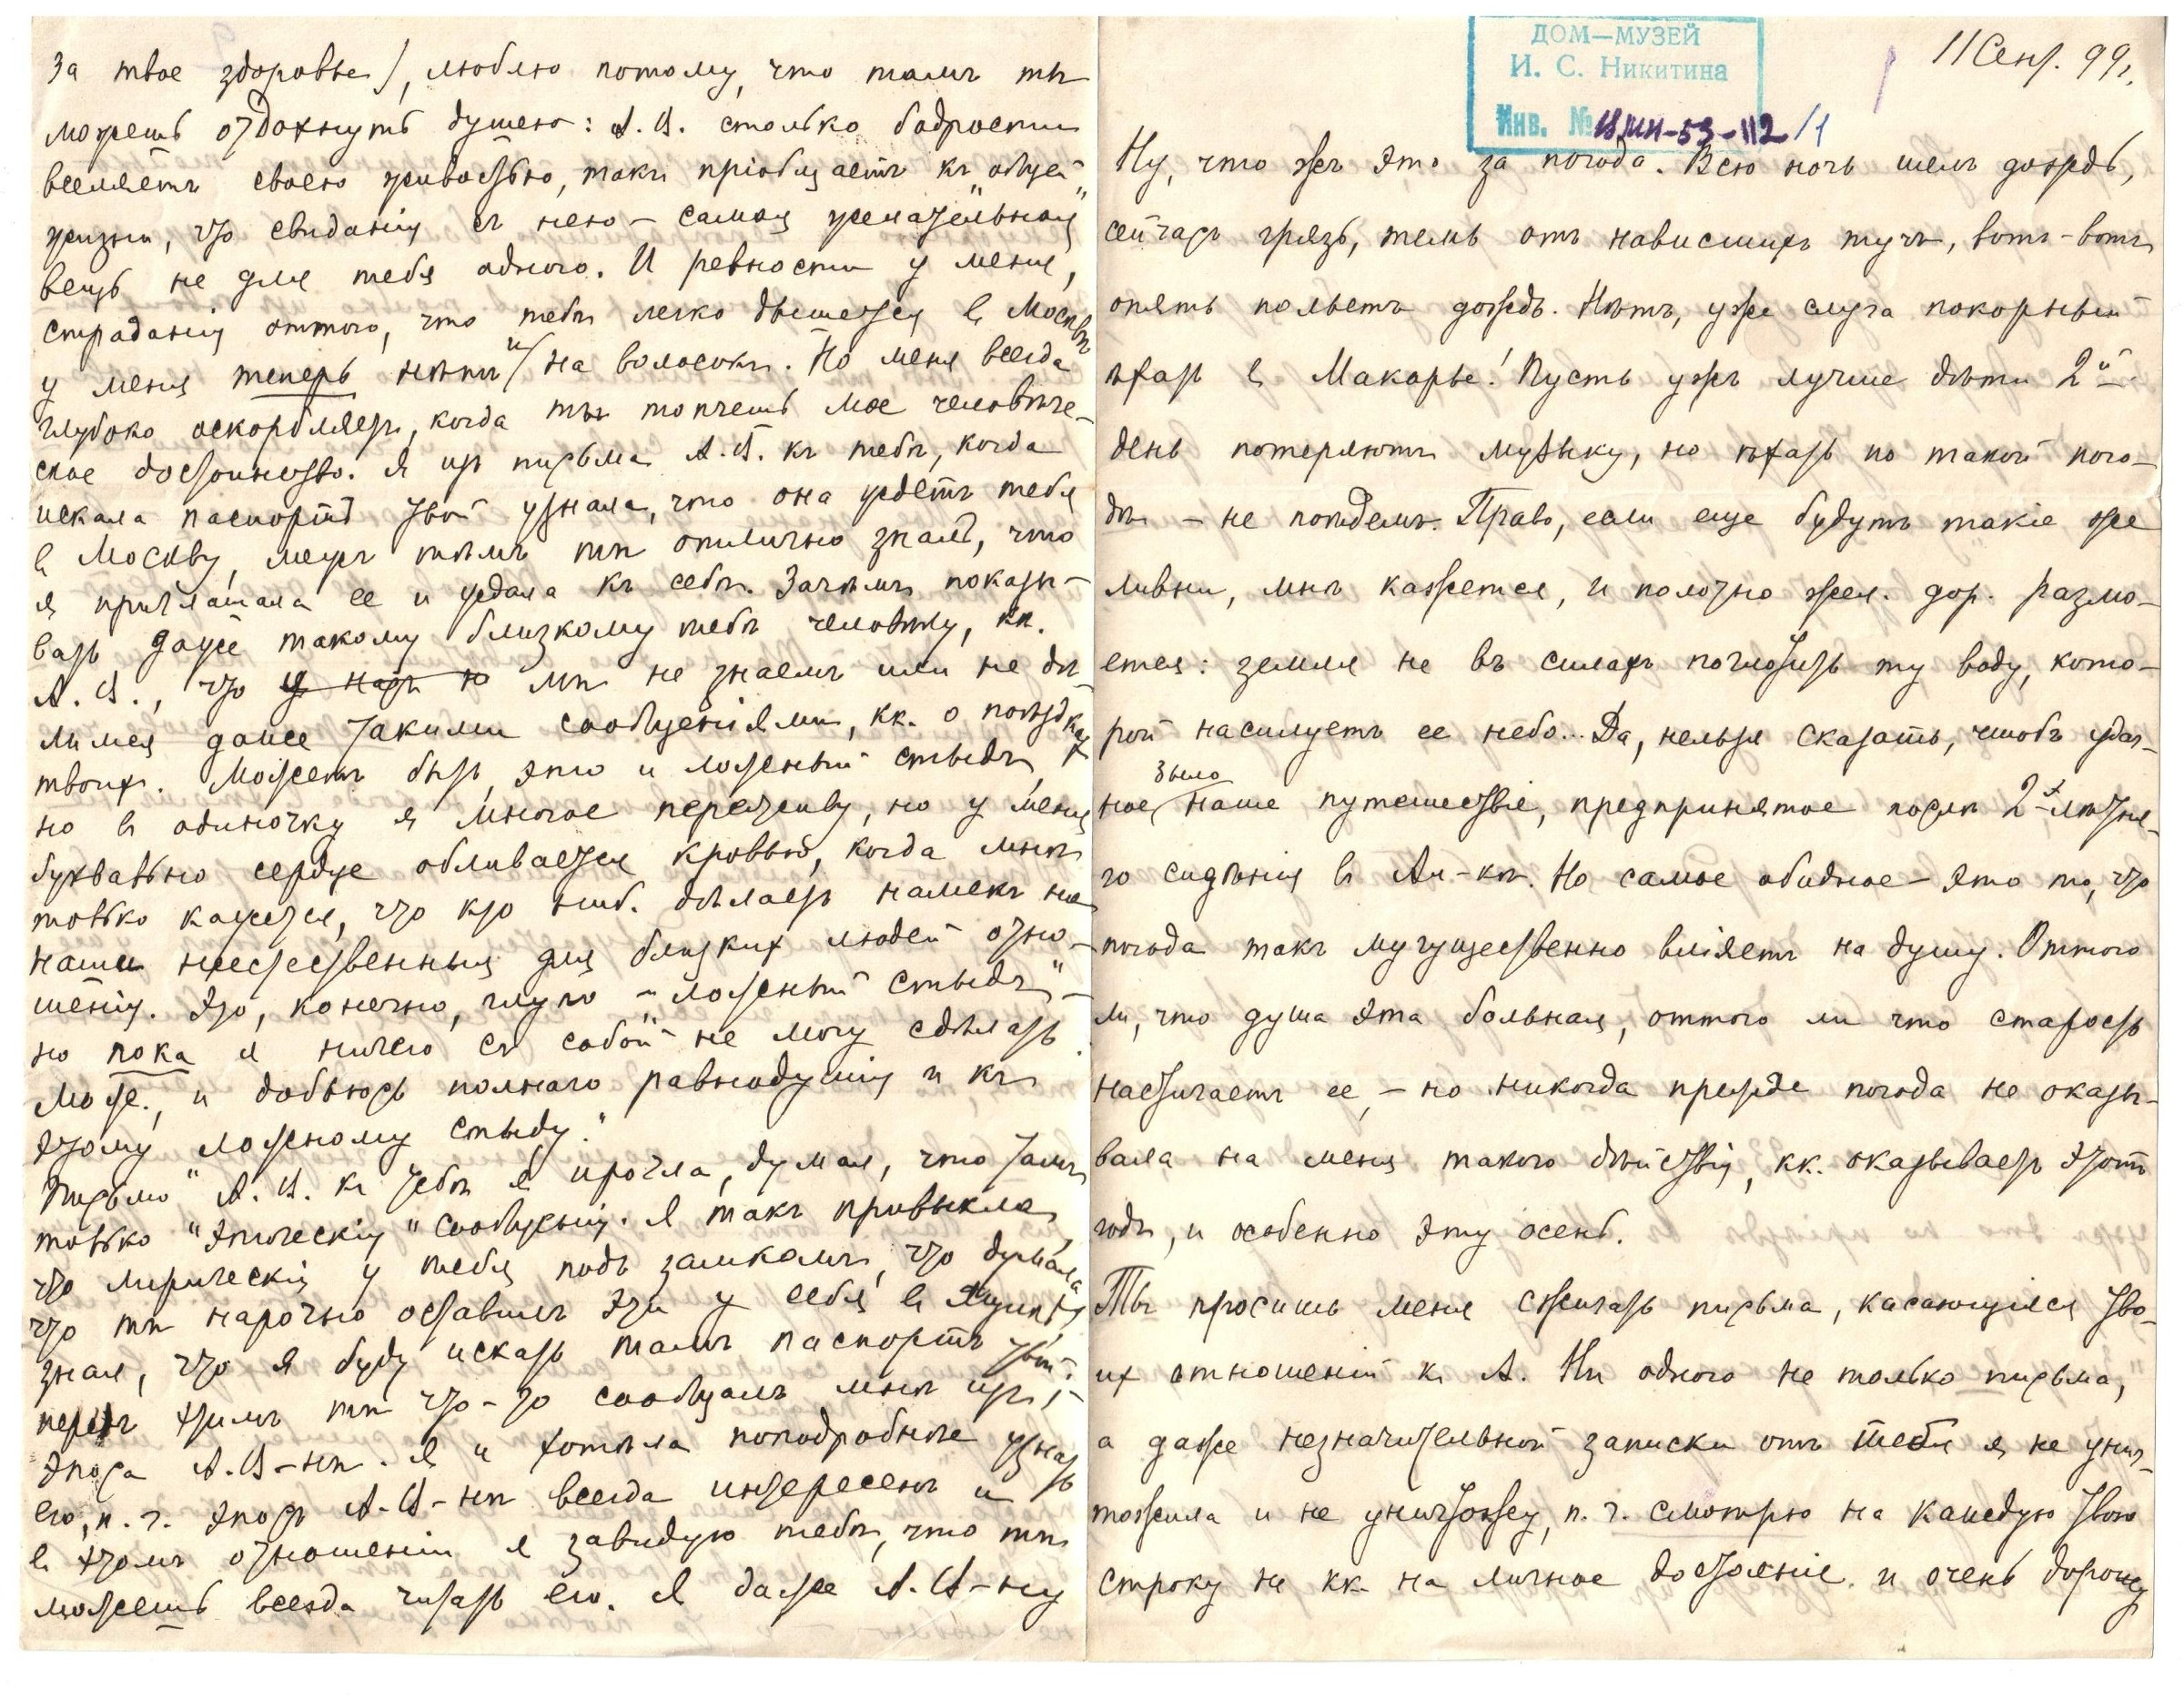 за твое здоровье), люблю потому, что тамъ ты
можешь отдохнуть душею: А. И. столько бодрости
вселяетъ своею живостью, такъ пріобщаетъ къ "общей
жизни", что свиданія съ нею - самая желательная
вещь не для тебя одного. И ревности у меня,
страданія оттого, что тебѣ легко дышется въ Москвѣ
у меня теперь нѣтъ и на волосокъ. Но меня всегда
глубоко оскорбляетъ, когда ты топчешь мое человѣче-
ское достоинство. Я изъ письма А. И. къ тебѣ, когда
искала паспортъ твой узнала, что она ждетъ тебя
въ Москву, межъ тѣмъ ты отлично зналъ, что
я приглашала ее и ждала къ себѣ. Зачѣмъ показы-
вать даже такому близкому тебѣ человѣку, кк.
А. И., что мы не знаемъ или не дѣ-
лимся даже такими сообщеніями, кк. о поѣздкахъ
твоихъ. Можетъ быть, это и ложный стыдъ,
но въ одиночку я многое переживу, но у меня
буквально сердце обливается кровью, когда мнѣ
только кажется, что кто ниб. дѣлаетъ намекъ на
наши неестественныя для близкихъ людей отно-
шенія. Это, конечно, глупо - "ложный стыдъ" -
но пока я ничего съ собой не могу сдѣлать.
Може., и добьюсь полнаго равнодушія и къ
этому "ложному стыду."
Письмо А. И. къ тебѣ я прочла, думая, что тамъ
только "эпическія" сообщенія. Я такъ привыкла,
что лирическія у тебя подъ замкомъ, что думала
что ты нарочно оставилъ эти у себя въ ящикѣ,
зная, что я буду искать тамъ паспортъ твой:
передъ этимъ ты что-то сообщалъ мнѣ изъ
эпоса А. И-ны. Я и хотѣла поподробнѣе узнать
его, п. ч. эпосъ А. И-ны всегда интересенъ и
въ этомъ отношеніи я завидую тебѣ, что ты
можешь всегда читать его. Я даже А. И-ну
ДОМ—МУЗЕЙ
И. С. Никитина
Инв. № -53-112/1
11 Сент. 99 г.
Ну, что жъ это за погода. Всю ночь шелъ дождь,
сейчасъ грязь, темь отъ нависшихъ тучъ, вотъ-вотъ
опять польетъ дождь. Нѣтъ, уже слуга покорный
ѣхать въ Макарье! Пусть ужъ лучше дѣти 2й
день потеряютъ музыку, но ѣхать по такой пого-
дѣ - не поѣдемъ. Право, если еще будутъ такіе же
ливни, мнѣ кажется, и полотно жел. дор. размо-
ется: земля не въ силахъ поглотить ту воду, кото-
рой насилуетъ ее небо... Да, нельзя сказать, чтобъ удач-
ное было наше путешествіе, предпринятое послѣ 2х-лѣтня-
го сидѣнія въ Ал-кѣ. Но самое обидное - это то, что
погода такъ могущественно вліяетъ на душу. Оттого
ли, что душа эта больная, оттого ли что старость
настигаетъ ее, - но никогда прежде погода не оказы-
вала на меня такого дѣйствія, кк. оказываетъ этотъ
годъ, и особенно эту осень.
Ты просишь меня сжигать письма, касающіяся тво-
ихъ отношеній къ А. Ни одного не только "письма,"
а даже незначительной записки отъ тебя я не унич-
тожила и не уничтожу, п. ч. смотрю на каждую твою
строку не кк. на личное достояніе и очень дорожу